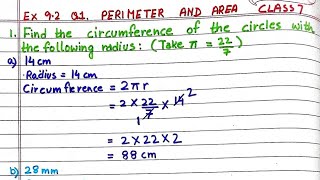 Ex 9.2 Q1. PERIMETER AND AREA CLASS 7
1. Find the circumference of the circles with
the following radius: (Take π = 22/7)
a) 14 cm
Radius = 14 cm
Circumference = 2πr
= 2 × 22/7 × 14 2
1
= 2 × 22 × 2
= 88 cm
b) 28 mm